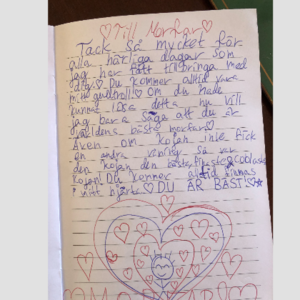 ♡Till Morfar♡
Tack så mycket för
alla härliga dagar som
jag har fått tillbringa med
dig♡ Du kommer alltid vara
mitt guldtroll♡ Om du hade
kunnat läsa detta nu vill
jag bara säga att du är
världens bästa morfar♡
Även om kojan inte fick
en andra våning så var
den kojan den bästa, finaste & coolaste
kojan! Du kommer alltid finnas
i mitt hjärta♡ DU ÄR BÄST!♡☆